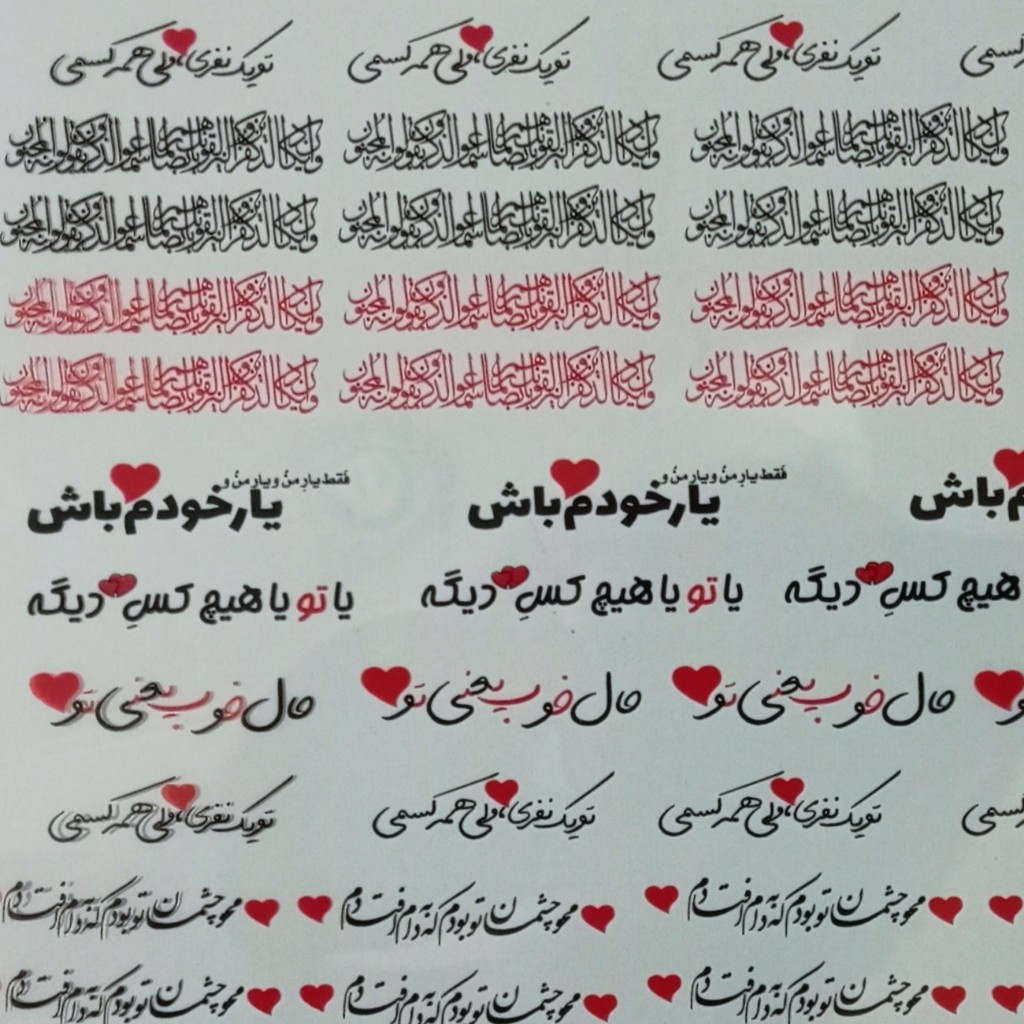 تو یک نفری، ولی همه کسمی تو یک نفری، ولی همه کسمی تو یک نفری، ولی همه کسمی کسمی
وإن يكاد الذين كفروا ليزلقونك بأبصارهم لما سمعوا الذكر ويقولون إنه لمجنون وإن يكاد الذين كفروا ليزلقونك بأبصارهم لما سمعوا الذكر ويقولون إنه لمجنون وإن يكاد الذين كفروا ليزلقونك بأبصارهم لما سمعوا الذكر ويقولون إنه لمجنون
وإن يكاد الذين كفروا ليزلقونك بأبصارهم لما سمعوا الذكر ويقولون إنه لمجنون وإن يكاد الذين كفروا ليزلقونك بأبصارهم لما سمعوا الذكر ويقولون إنه لمجنون وإن يكاد الذين كفروا ليزلقونك بأبصارهم لما سمعوا الذكر ويقولون إنه لمجنون
وإن يكاد الذين كفروا ليزلقونك بأبصارهم لما سمعوا الذكر ويقولون إنه لمجنون وإن يكاد الذين كفروا ليزلقونك بأبصارهم لما سمعوا الذكر ويقولون إنه لمجنون وإن يكاد الذين كفروا ليزلقونك بأبصارهم لما سمعوا الذكر ويقولون إنه لمجنون
وإن يكاد الذين كفروا ليزلقونك بأبصارهم لما سمعوا الذكر ويقولون إنه لمجنون وإن يكاد الذين كفروا ليزلقونك بأبصارهم لما سمعوا الذكر ويقولون إنه لمجنون وإن يكاد الذين كفروا ليزلقونك بأبصارهم لما سمعوا الذكر ويقولون إنه لمجنون
فقط یارِ منُ و یارِ منُ و فقط یارِ منُ و یارِ منُ و
باش یار خودم باش یار خودم باش
هیچ کسِ دیگه یا تو یا هیچ کسِ دیگه یا تو یا هیچ کسِ دیگه
حال خوب یعنی تو حال خوب یعنی تو حال خوب یعنی تو
تو یک نفری، ولی همه کسمی تو یک نفری، ولی همه کسمی تو یک نفری، ولی همه کسمی کسمی
محو چشمان تو بودم که به دام افتادم محو چشمان تو بودم که به دام افتادم محو چشمان تو بودم که به دام افتادم
محو چشمان تو بودم که به دام افتادم محو چشمان تو بودم که به دام افتادم محو چشمان تو بودم که به دام افتادم